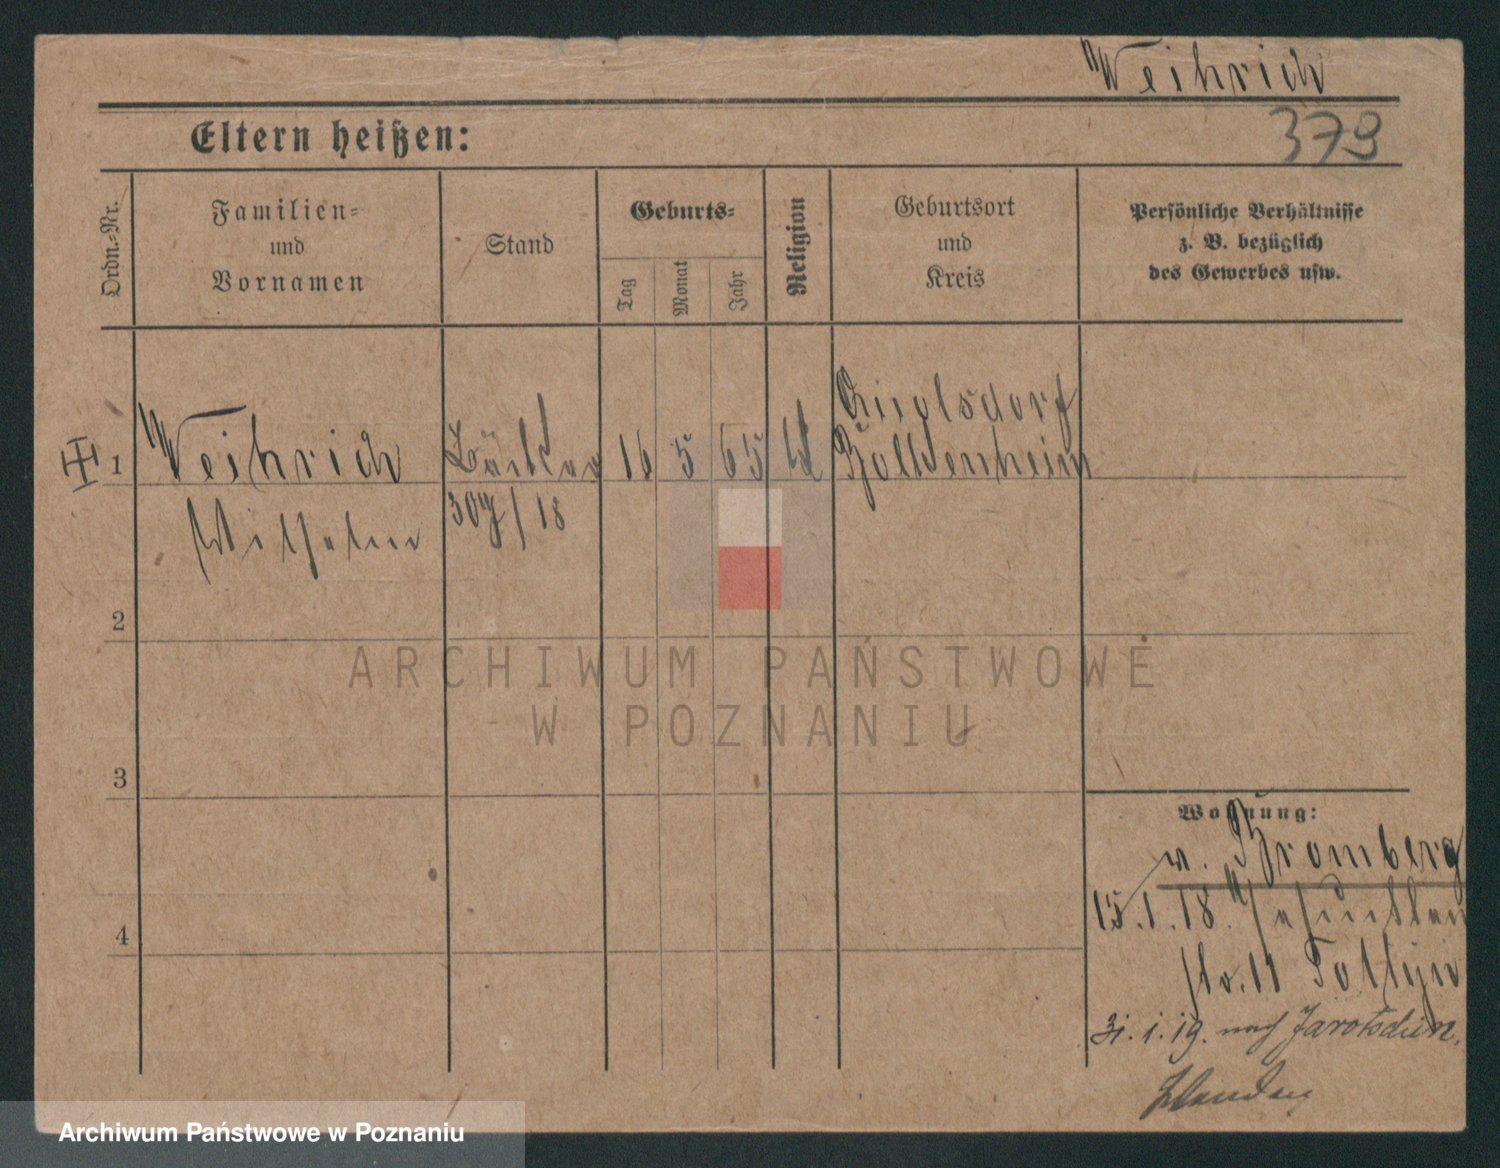 Weihrich
379
Eltern heißen:
Ordn.-Nr.
Familien-
und
Vornamen
Stand
Geburts-
Tag
Monat
Jahr
Religion
Geburtsort
und
Kreis
Persönliche Verhältnisse
z. B. bezüglich
des Gewerbes usw.
1
Weihrich
Wilhelm
Bäcker
16
5
65
Bolkenheim
2
3
4
Wohnung:
v. Bromberg
15.1.18.
31.1.19. nach Jarotschin.
ARCHIWUM PAŃSTWOWE
W POZNANIU
Archiwum Państwowe w Poznaniu